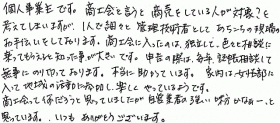 個人事業主です。商工会と言うと商売をしている人が対象?と
考えてしまいますが、1人で細々と管理技術者としてあちこちの現場の
お手伝いをしております。商工会に入ったのは、独立して、色々と相談に
乗ってもらえると知った事が大きいです。申告の際は、毎年記帳相談にて
無事にのり切っております。本当に助かっています。家内は女性部に
入って地域の活動に参加し、楽しくやっているようです。
商工会って何だろうと思っていましたが自営業者の強い味方かなぁー、と
思っている、いつもありがとうございます。